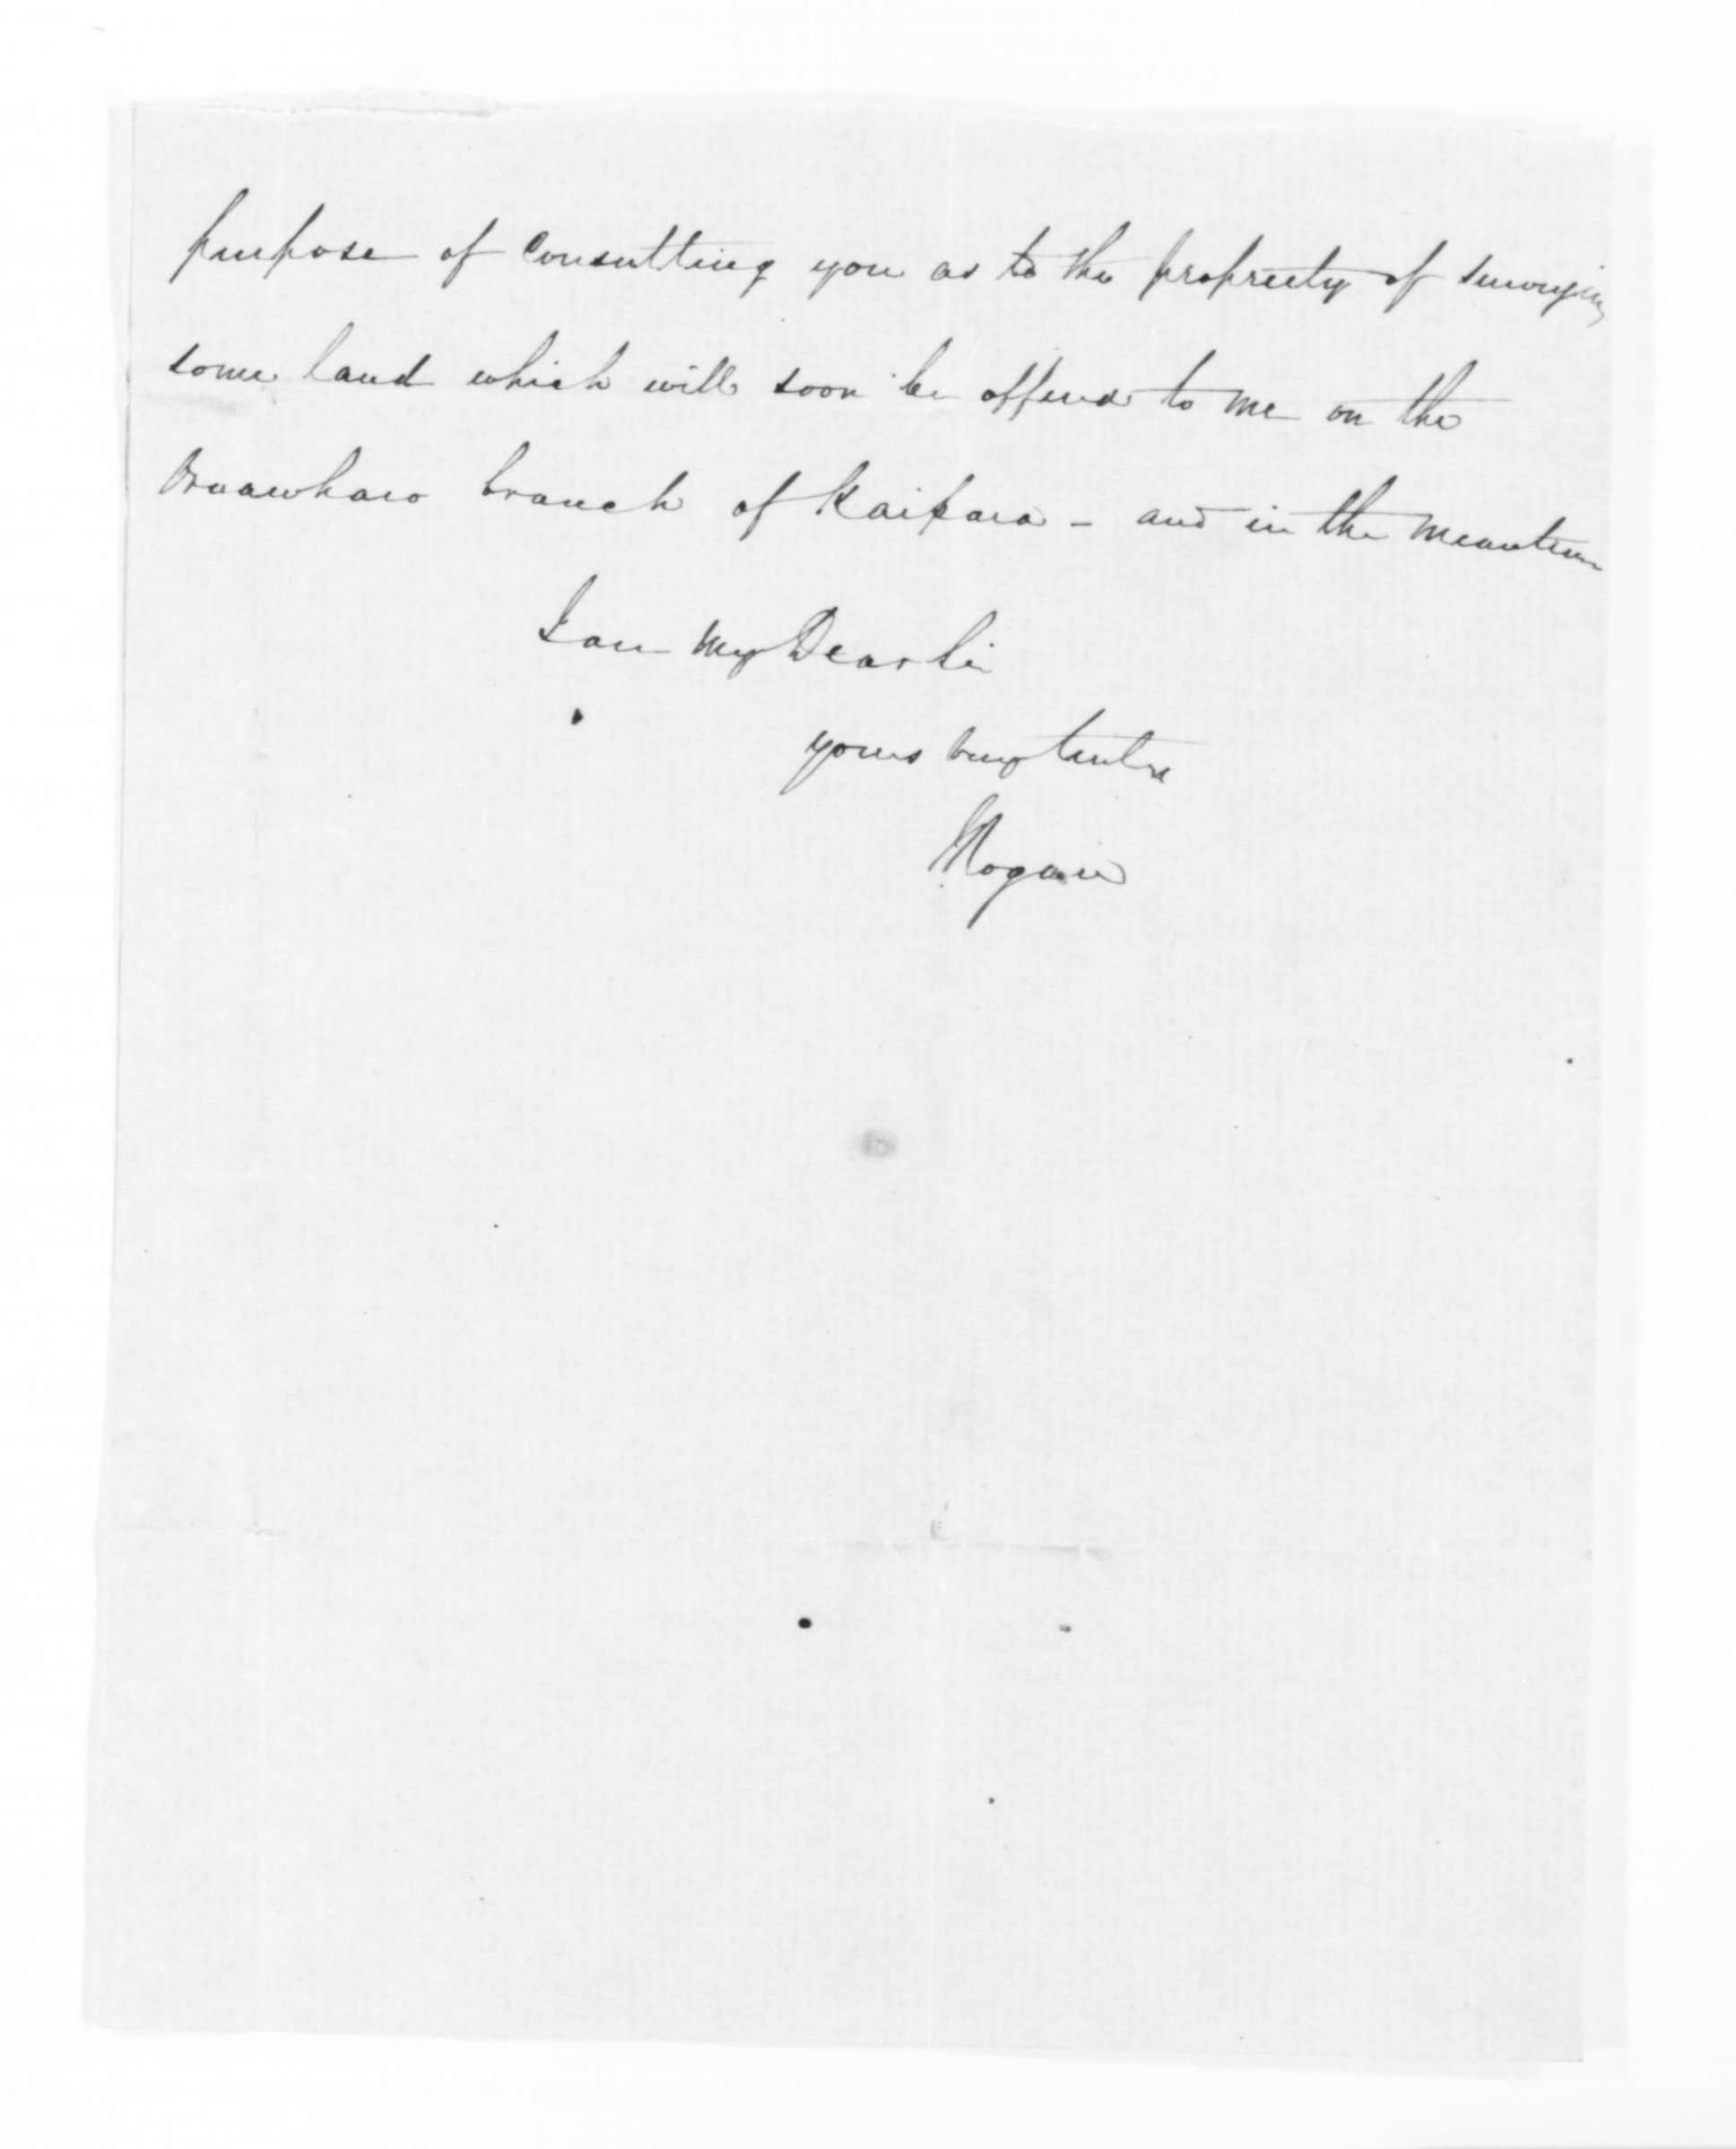 purpose of Consulting you as to the propriety of surveying
some land which will soon be offered to me on the
Oruawharo branch of Kaipara - and in the meantime
I am My Dear Sir
yours very truly
Rogan